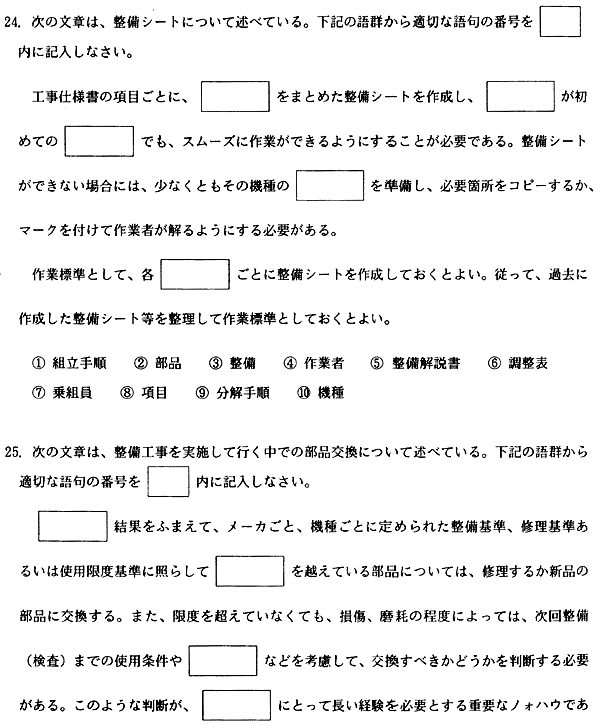 24. 次の文章は、整備シートについて述べている。下記の語群から適切な語句の番号を
内に記入しなさい。
工事仕様書の項目ごとに、 をまとめた整備シートを作成し、 が初
めての でも、スムーズに作業ができるようにすることが必要である。整備シート
ができない場合には、少なくともその機種の を準備し、必要箇所をコピーするか、
マークを付けて作業者が解るようにする必要がある。
作業標準として、各 ごとに整備シートを作成しておくとよい。従って、過去に
作成した整備シート等を整理して作業標準としておくとよい。
① 組立手順 ② 部品 ③ 整備 ④ 作業者 ⑤ 整備解説書 ⑥ 調整表
⑦ 乗組員 ⑧ 項目 ⑨ 分解手順 ⑩ 機種
25. 次の文章は、整備工事を実施して行く中での部品交換について述べている。下記の語群から
適切な語句の番号を 内に記入しなさい。
結果をふまえて、メーカごと、機種ごとに定められた整備基準、修理基準あ
るいは使用限度基準に照らして を越えている部品については、修理するか新品の
部品に交換する。また、限度を超えていなくても、損傷、磨耗の程度によっては、次回整備
（検査）までの使用条件や などを考慮して、交換すべきかどうかを判断する必要
がある。このような判断が、 にとって長い経験を必要とする重要なノォハウであ